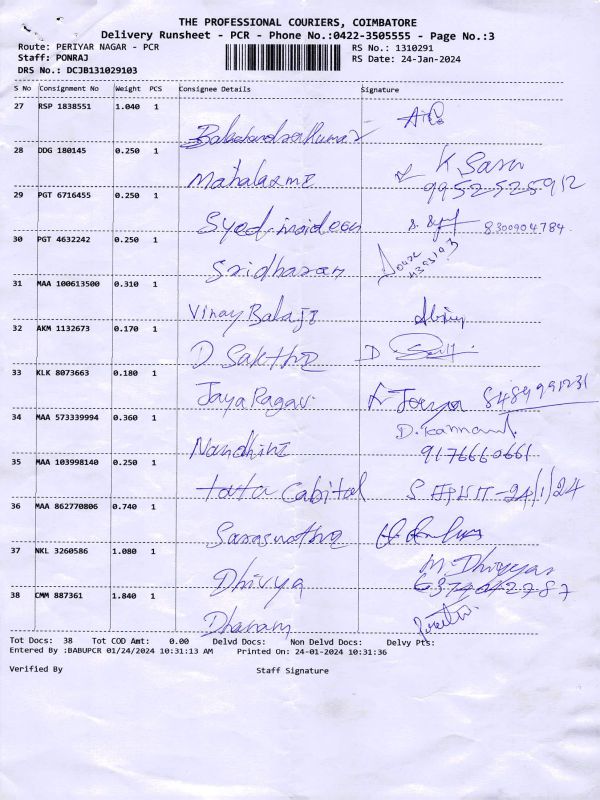 THE PROFESSIONAL COURIERS, COIMBATORE
Delivery Runsheet - PCR - Phone No.:0422-3505555 - Page No.:3
Route: PERIYAR NAGAR - PCR RS No.: 1310291
Staff: PONRAJ RS Date: 24-Jan-2024
DRS No.: DCJB131029103
S No Consignment No Weight PCS Consignee Details Signature
27 RSP 1838551 1.040 1
Balachandra Kumar
28 DDG 180145 0.250 1 K Sasu
Mahalaxmi 9952525912
29 PGT 6716455 0.250 1
Syed 8300904784
30 PGT 4632242 0.250 1
Sridharan
31 MAA 100613500 0.310 1
Vinay Balaji
32 AKM 1132673 0.170 1
D Sakthi D
33 KLK 8073663 0.180 1
Jaya Ragavi
34 MAA 573339994 0.360 1
Nandhini 9176660661
35 MAA 103998140 0.250 1
tata Cabital -24/1/24
36 MAA 862770806 0.740 1
Saraswathi
37 NKL 3260586 1.080 1 M. Dhivyaa
Dhivya
38 CMM 887361 1.840 1
Dharani
Tot Docs: 38 Tot COD Amt: 0.00 Delvd Docs: Non Delvd Docs: Delvy Pts:
Entered By :BABUPCR 01/24/2024 10:31:13 AM Printed On: 24-01-2024 10:31:36
Verified By Staff Signature